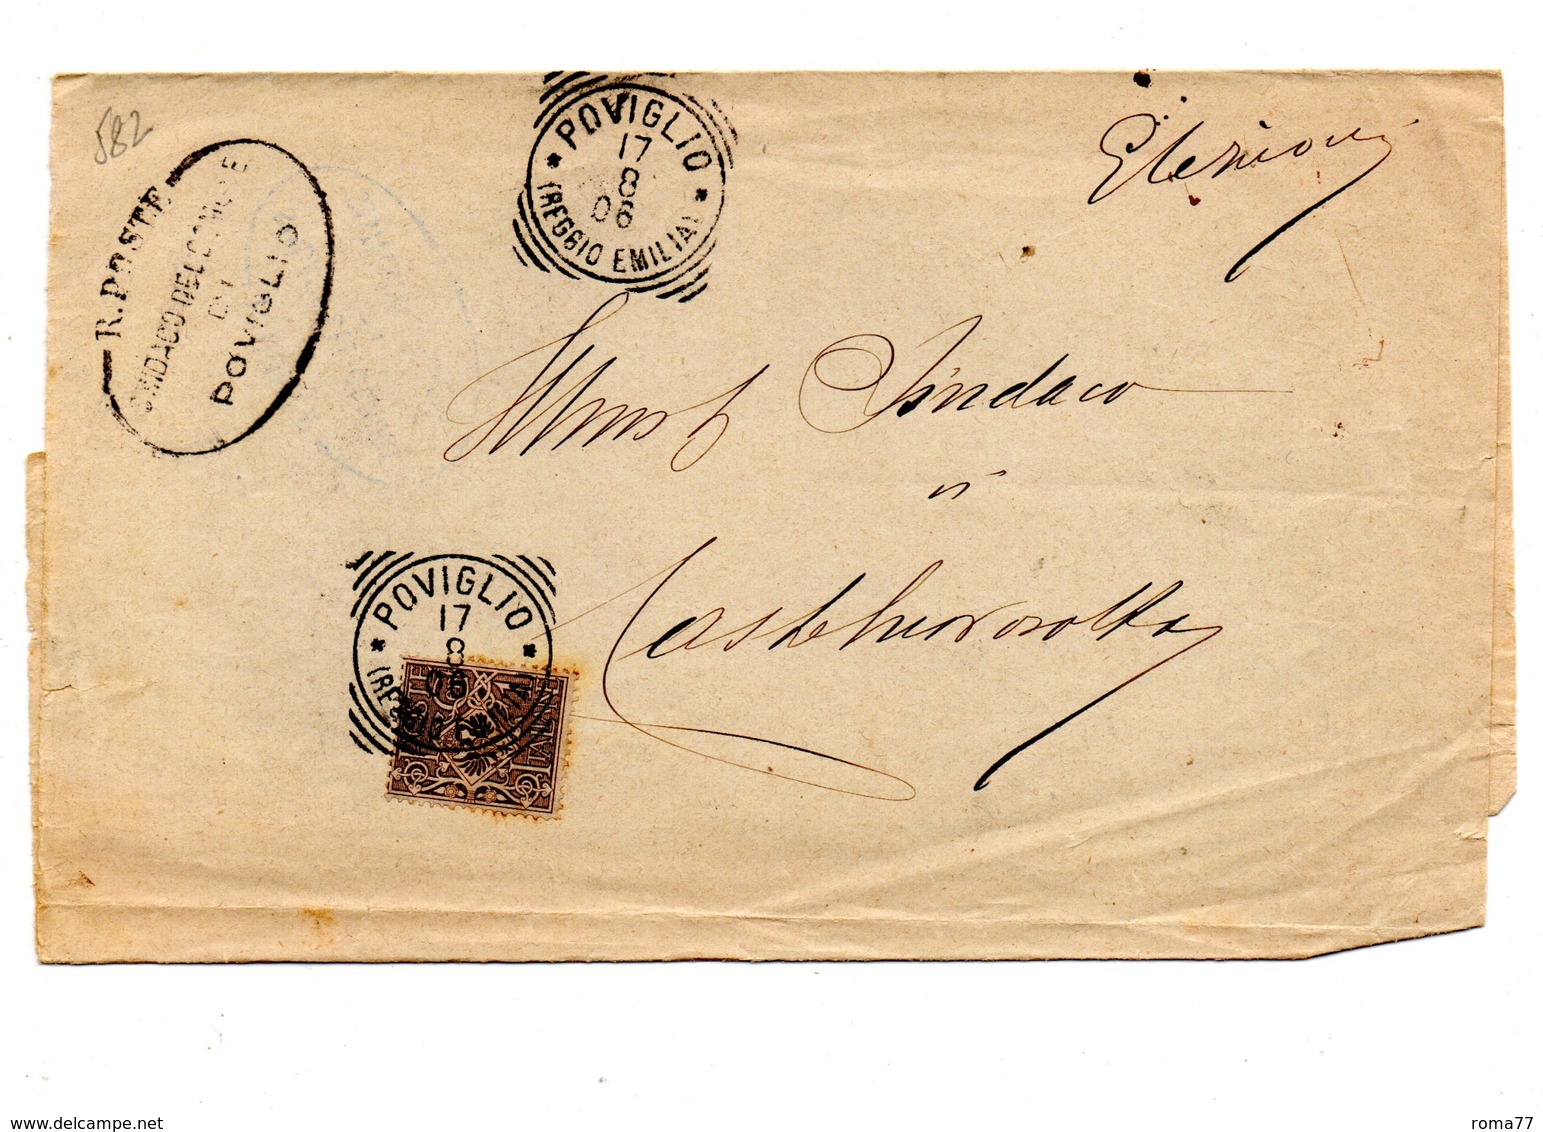 582
R. POSTE
SINDACO DEL COMUNE
DI
POVIGLIO
POVIGLIO
17
8
06
(REGGIO EMILIA)
Elezioni
Illmo Sig Sindaco
di
Castelnovosotto
POVIGLIO
17
8
06
www.delcampe.net
roma77